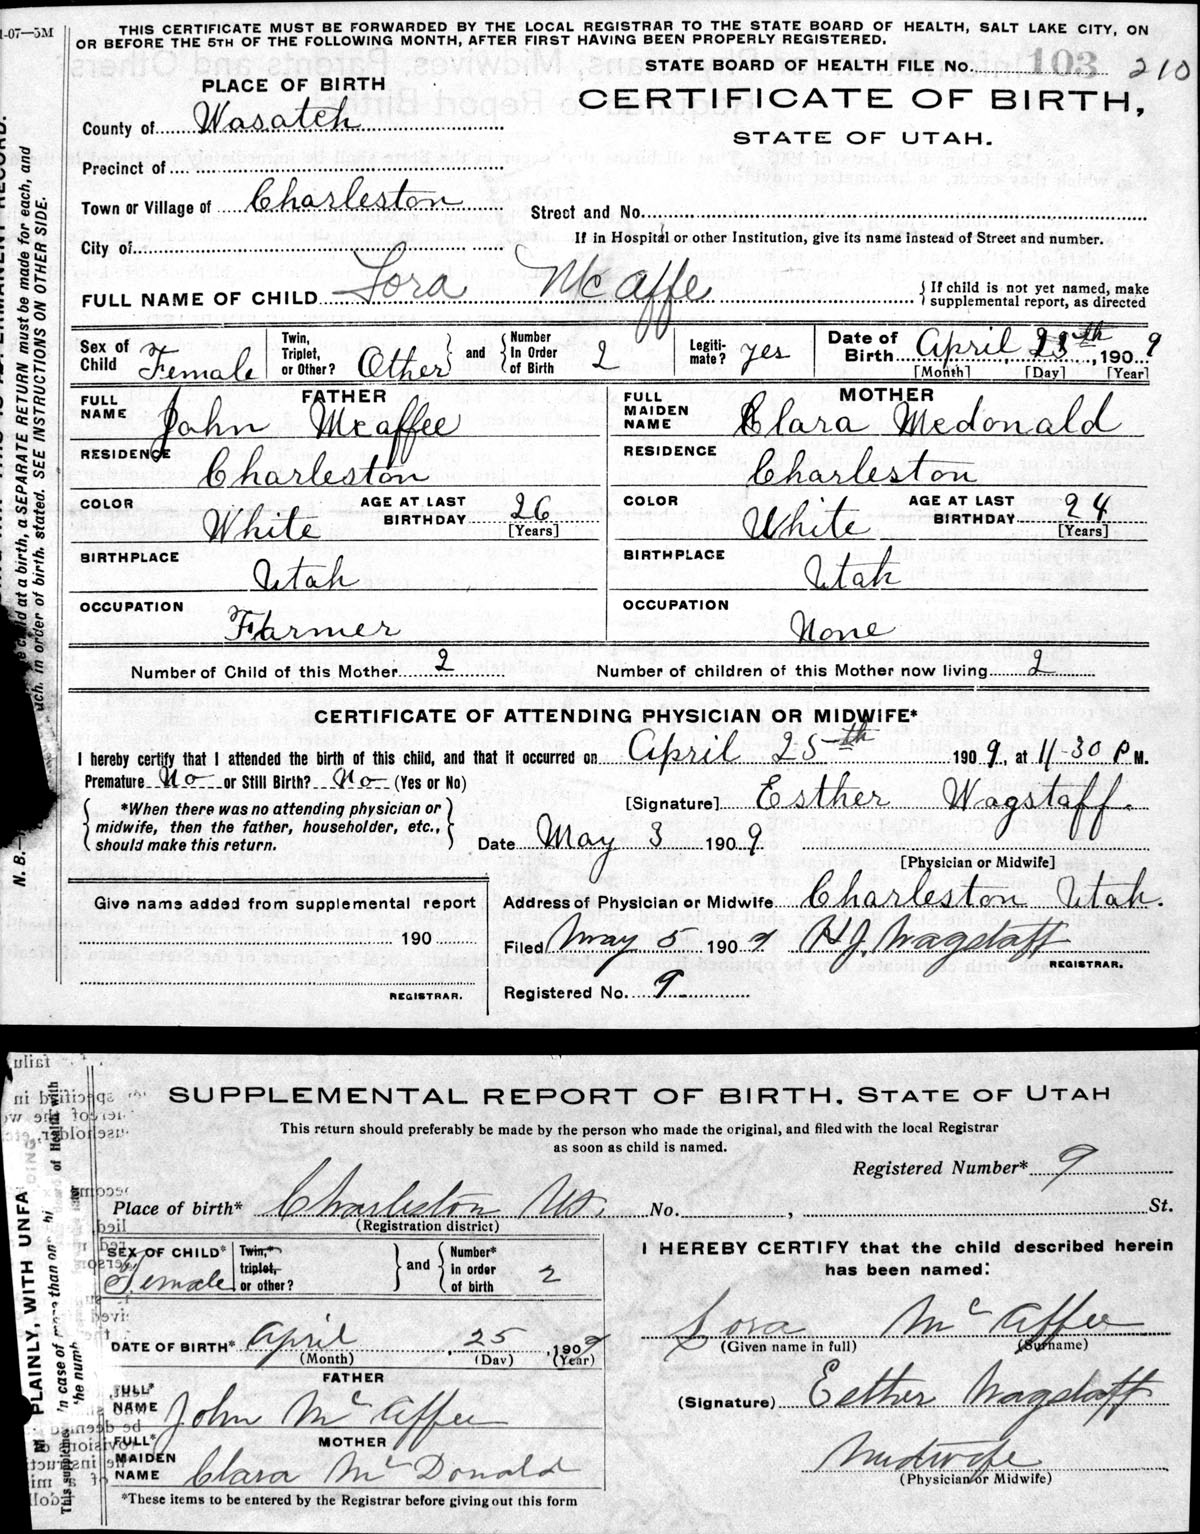 1-07—5M
THIS CERTIFICATE MUST BE FORWARDED BY THE LOCAL REGISTRAR TO THE STATE BOARD OF HEALTH, SALT LAKE CITY, ON
OR BEFORE THE 5TH OF THE FOLLOWING MONTH, AFTER FIRST HAVING BEEN PROPERLY REGISTERED.
STATE BOARD OF HEALTH FILE No. 103 210
PLACE OF BIRTH
CERTIFICATE OF BIRTH,
STATE OF UTAH.
County of Wasatch
Precinct of
Town or Village of Charleston
Street and No.
City of
If in Hospital or other Institution, give its name instead of Street and number.
FULL NAME OF CHILD Lora McAffe
{If child is not yet named, make
supplemental report, as directed
Sex of Child Female
Twin, Triplet, or Other? Other } and { Number In Order of Birth 2
Legiti-mate? yes
Date of Birth April 25th, 1909
[Month] [Day] [Year]
FATHER
FULL NAME John Mcaffee
RESIDENCE Charleston
COLOR White AGE AT LAST BIRTHDAY 26 [Years]
BIRTHPLACE Utah
OCCUPATION Farmer
MOTHER
FULL MAIDEN NAME Clara Mcdonald
RESIDENCE Charleston
COLOR White AGE AT LAST BIRTHDAY 24 [Years]
BIRTHPLACE Utah
OCCUPATION None
Number of Child of this Mother 2 Number of children of this Mother now living 2
CERTIFICATE OF ATTENDING PHYSICIAN OR MIDWIFE*
I hereby certify that I attended the birth of this child, and that it occurred on April 25th 1909, at 11-30 P M.
Premature No or Still Birth? No (Yes or No)
{*When there was no attending physician or
midwife, then the father, householder, etc.,
should make this return.}
[Signature] Esther Wagstaff.
Date May 3 1909
[Physician or Midwife]
Give name added from supplemental report
190
REGISTRAR.
Address of Physician or Midwife Charleston Utah.
Filed May 5 1909 H J. Wagstaff
REGISTRAR.
Registered No. 9
child at a birth, a SEPARATE RETURN must be made for each, and
in order of birth, stated. SEE INSTRUCTIONS ON OTHER SIDE.
N. B.—
SUPPLEMENTAL REPORT OF BIRTH, STATE OF UTAH
This return should preferably be made by the person who made the original, and filed with the local Registrar
as soon as child is named.
Registered Number* 9
Place of birth* Charleston Ut. No. , St.
(Registration district)
SEX OF CHILD* Female
Twin,* triplet, or other? } and { Number* in order of birth 2
DATE OF BIRTH* April 25, 1909
(Month) (Day) (Year)
FATHER
FULL* NAME John McAffee
MOTHER
FULL* MAIDEN NAME Clara McDonald
*These items to be entered by the Registrar before giving out this form
I HEREBY CERTIFY that the child described herein
has been named:
Lora McAffee
(Given name in full) (Surname)
(Signature) Esther Wagstaff
Midwife
(Physician or Midwife)
PLAINLY, WITH UNFA